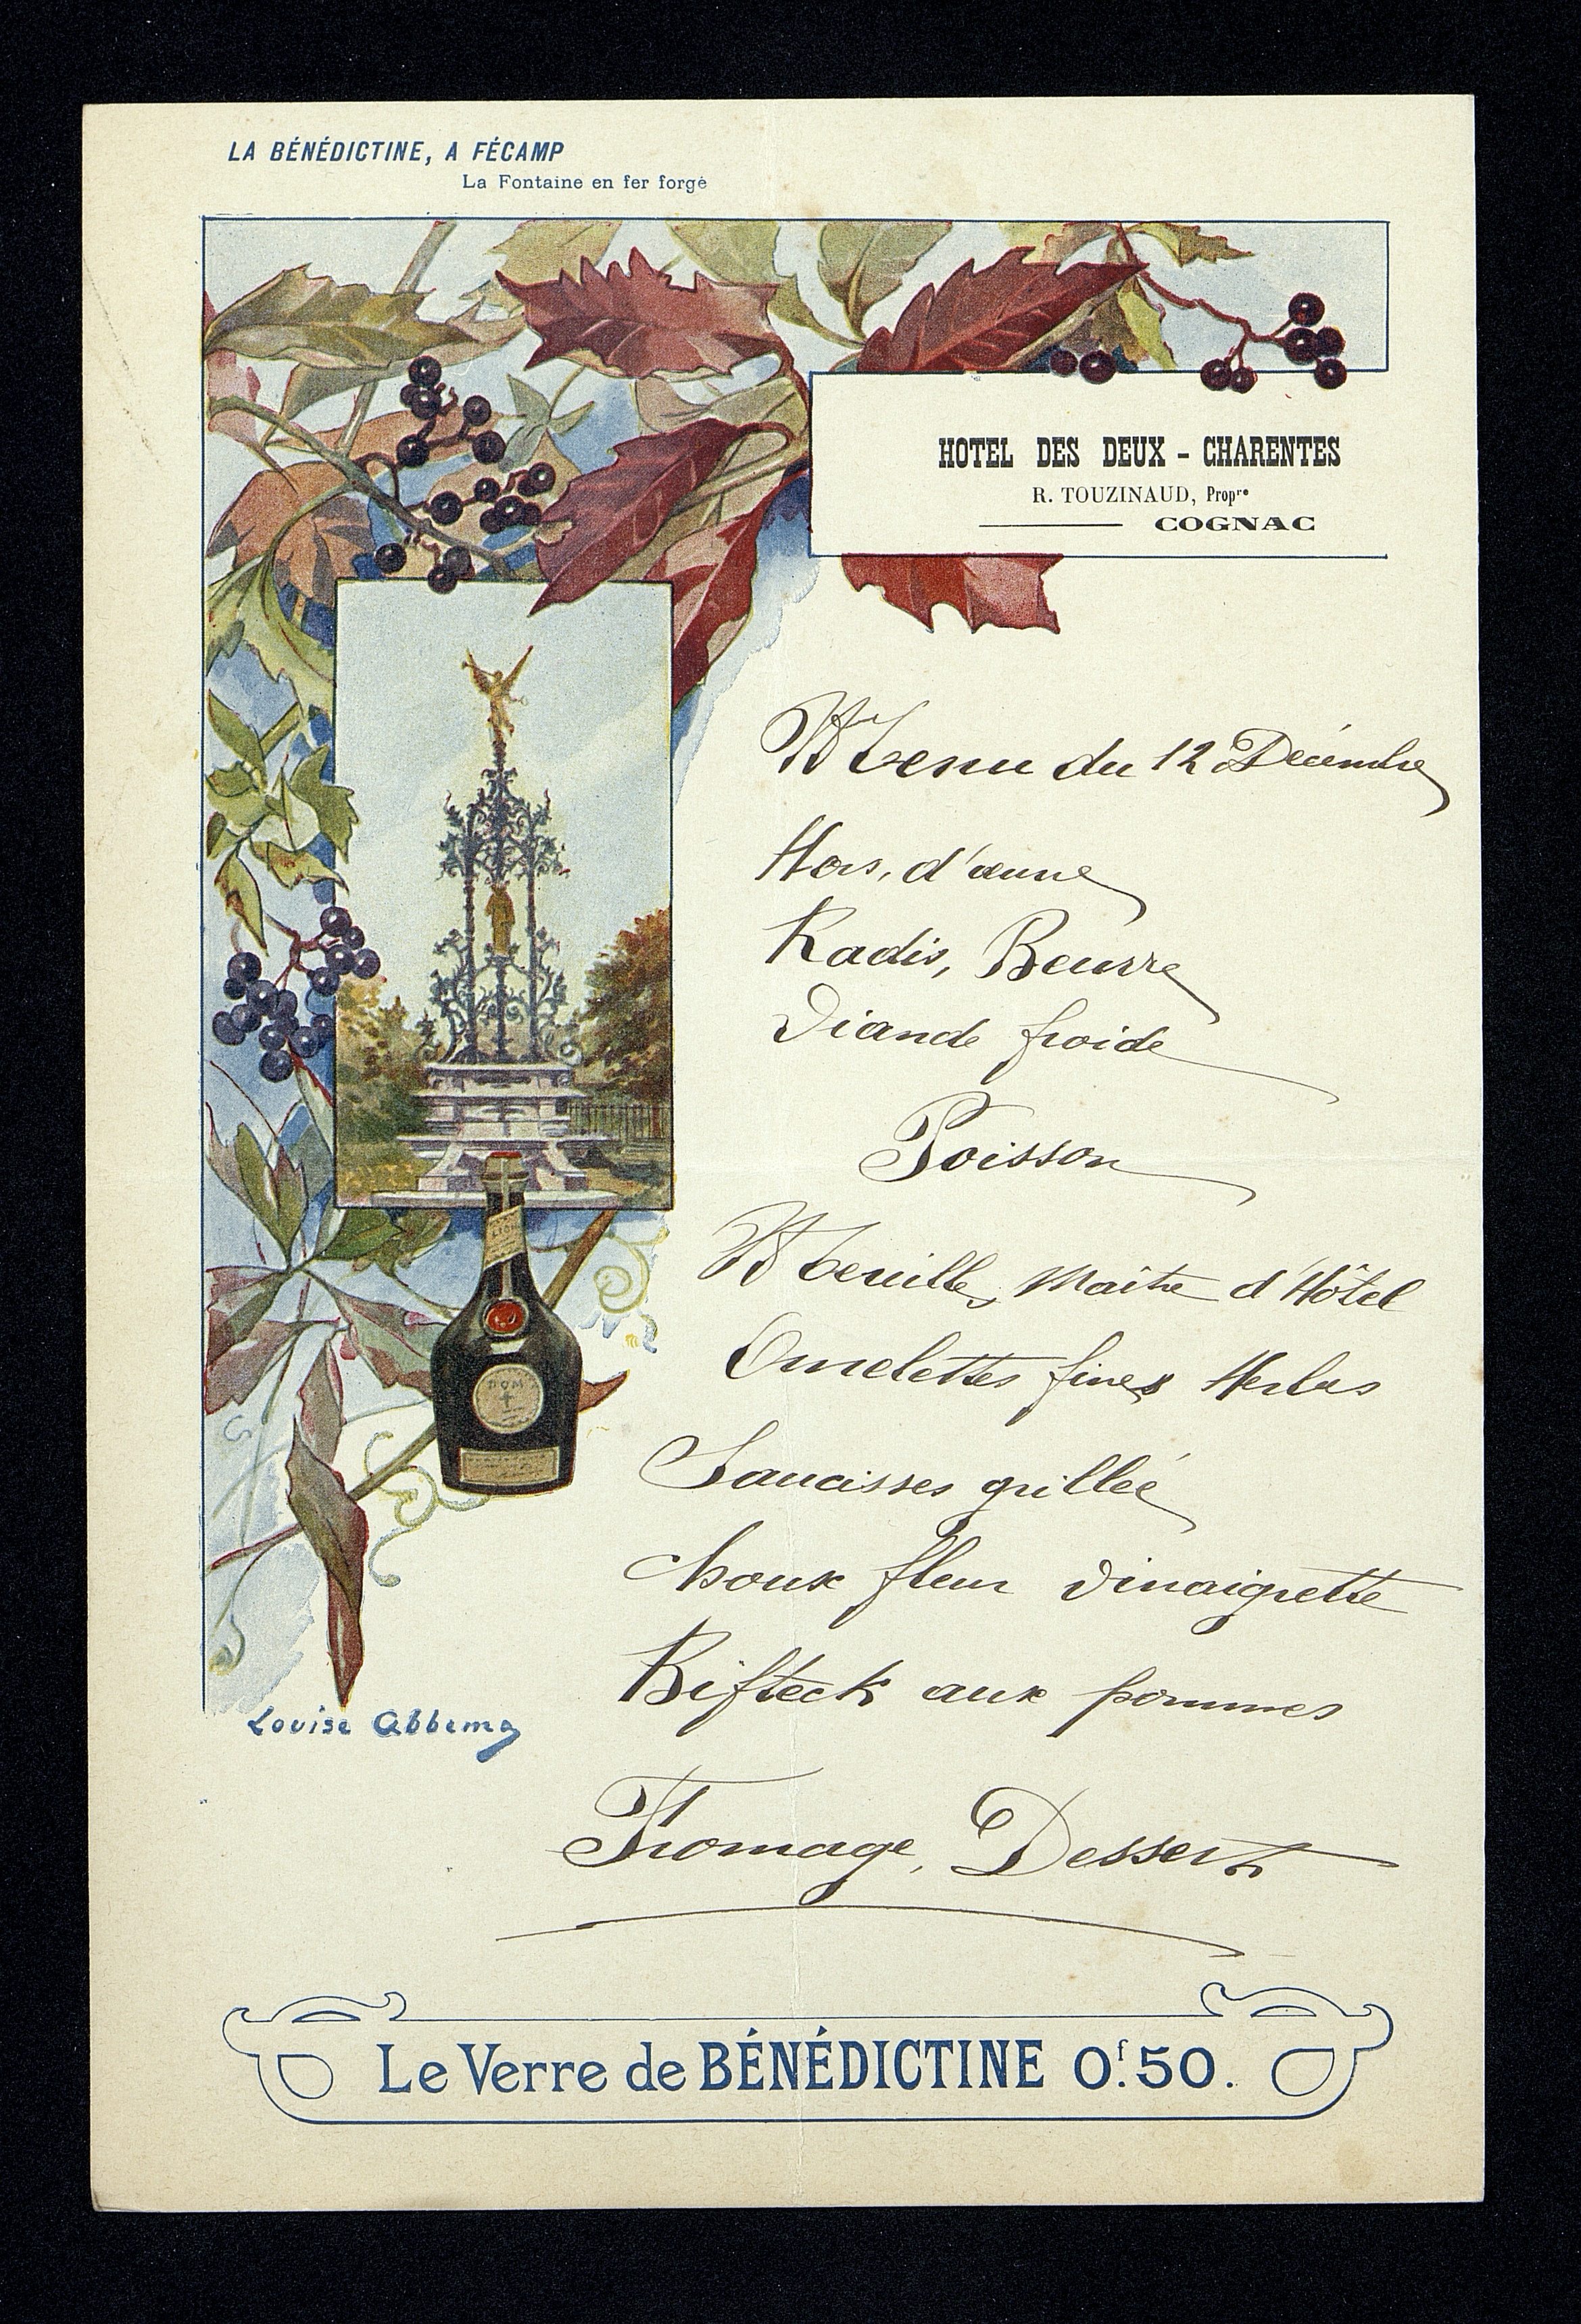 LA BÉNÉDICTINE, A FÉCAMP
La Fontaine en fer forgé
HOTEL DES DEUX - CHARENTES
R. TOUZINAUD, Propre
COGNAC
Menu du 12 Décembre
Hors, d'œuvre
Radis, Beurre
Viande froide
Poisson
Meuille, Maître d'Hôtel
Omelettes fines Herbes
Saucisses grillée
Choux fleur vinaigrette
Bifteck aux pommes
Fromage, Dessert
DOM
Louise Abbema
Le Verre de BÉNÉDICTINE 0f.50.